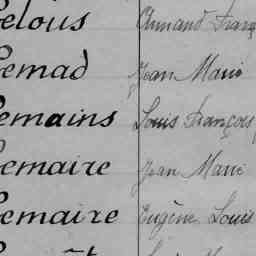 Lelous Armand Franç
Lemad Jean Marie
Lemains Louis François
Lemaire Jean Marie
Lemaire Eugène Louis